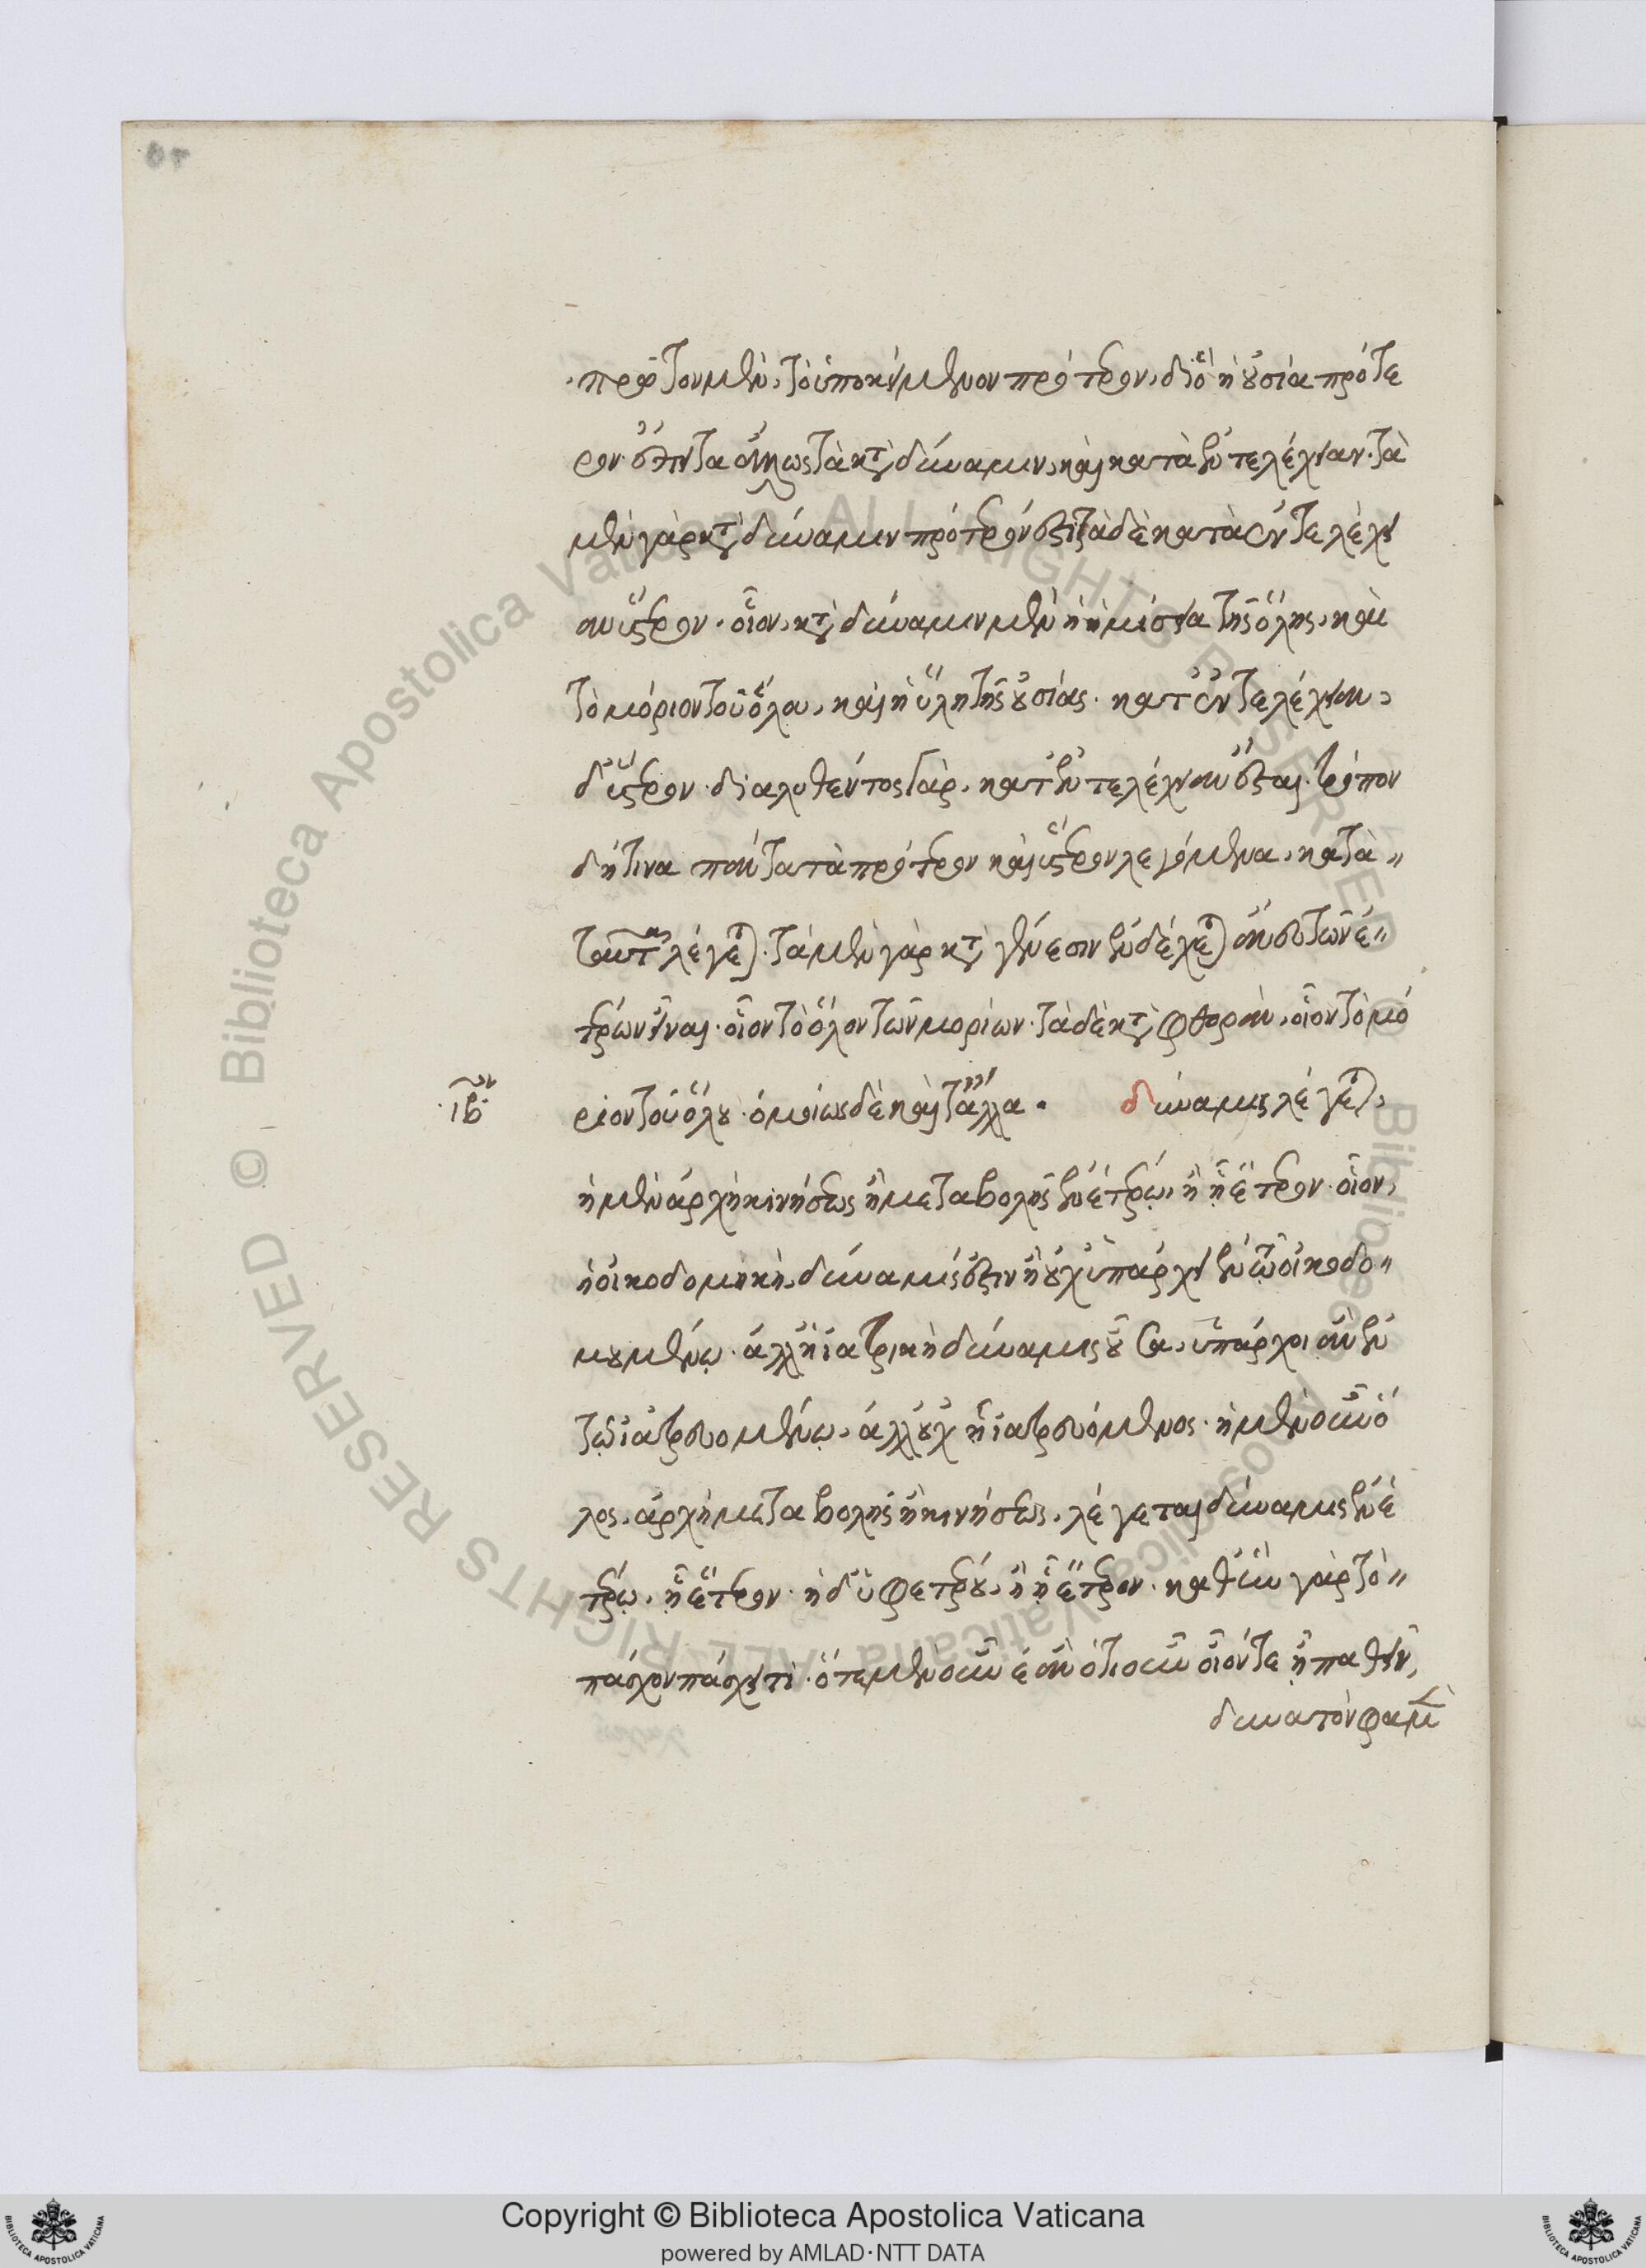 πρῶτον μὲν, τὸ ὑποκείμενον πρότερον, διὸ ἡ οὐσία πρότε
ρον· ἔπειτα ἄλλως τὰ κατὰ δύναμιν, καὶ κατὰ ἐντελέχειαν· τὰ
μὲν γὰρ κατὰ δύναμιν πρότερόν ἐστι, τὰ δὲ κατὰ ἐντελέχει
αν ὕστερον· οἷον, κατὰ δύναμιν μὲν ἡ ἡμίσεια τῆς ὅλης, καὶ
τὸ μόριον τοῦ ὅλου, καὶ ἡ ὕλη τῆς οὐσίας· κατ' ἐντελέχειαν,
δ' ὕστερον· διαλυθέντος γὰρ, κατ' ἐντελέχειαν ἔσται· τρόπον
δή τινα πάντα τὰ πρότερον καὶ ὕστερον λεγόμενα, κατὰ
ταῦτα λέγεται· τὰ μὲν γὰρ κατὰ γένεσιν ἐνδέχεται ἄνευ τῶν ἑ
τέρων εἶναι· οἷον τὸ ὅλον τῶν μορίων· τὰ δὲ κατὰ φθορὰν, οἷον τὸ μό
ιβον ριον τοῦ ὅλου· ὁμοίως δὲ καὶ τἄλλα. δύναμις λέγεται,
ἡ μὲν ἀρχὴ κινήσεως ἢ μεταβολῆς ἐν ἑτέρῳ, ἢ ᾗ ἕτερον· οἷον,
ἡ οἰκοδομικὴ, δύναμίς ἐστιν ἣ οὐχ ὑπάρχει ἐν τῷ οἰκοδο
μουμένῳ· ἀλλ' ἡ ἰατρικὴ δύναμις οὖσα, ὑπάρχοι ἂν ἐν
τῷ ἰατρευομένῳ, ἀλλ' οὐχ ᾗ ἰατρευόμενος· ἡ μὲν οὖν ὅ
λως, ἀρχὴ μεταβολῆς ἢ κινήσεως, λέγεται δύναμις ἐν ἑ
τέρῳ, ᾗ ἕτερον· ἡ δ' ὑφ' ἑτέρου, ἢ ᾗ ἕτερον· καθ' ἣν γὰρ τὸ
πάσχον πάσχει τι· ὁτὲ μὲν οὖν ἐὰν ὁτιοῦν οἷόν τε ᾖ παθεῖν,
δυνατὸν φαμὲν
Copyright © Biblioteca Apostolica Vaticana
powered by AMLAD·NTT DATA